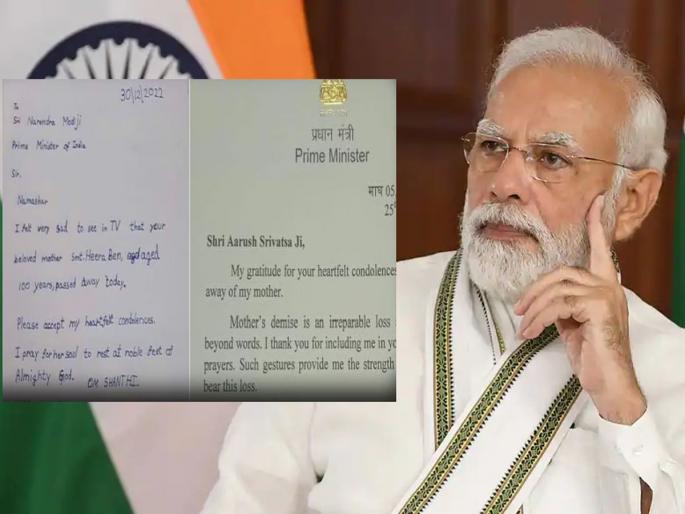 30/12/2022
To
Sri Narendra Modiji
Prime Minister of India
Sir.
Namaskar
I felt very sad to see in TV that your
beloved mother Smt. Heera Ben, aged
100 years, passed away today.
Please accept my heartfelt condolences.
I pray for her soul to rest at noble feet of
Almighty God. OM SHANTHI.
प्रधान मंत्री
Prime Minister
माघ 05
25
Shri Aarush Srivatsa Ji,
My gratitude for your heartfelt condolences
away of my mother.
Mother's demise is an irreparable loss
beyond words. I thank you for including me in yo
prayers. Such gestures provide me the strength
bear this loss.